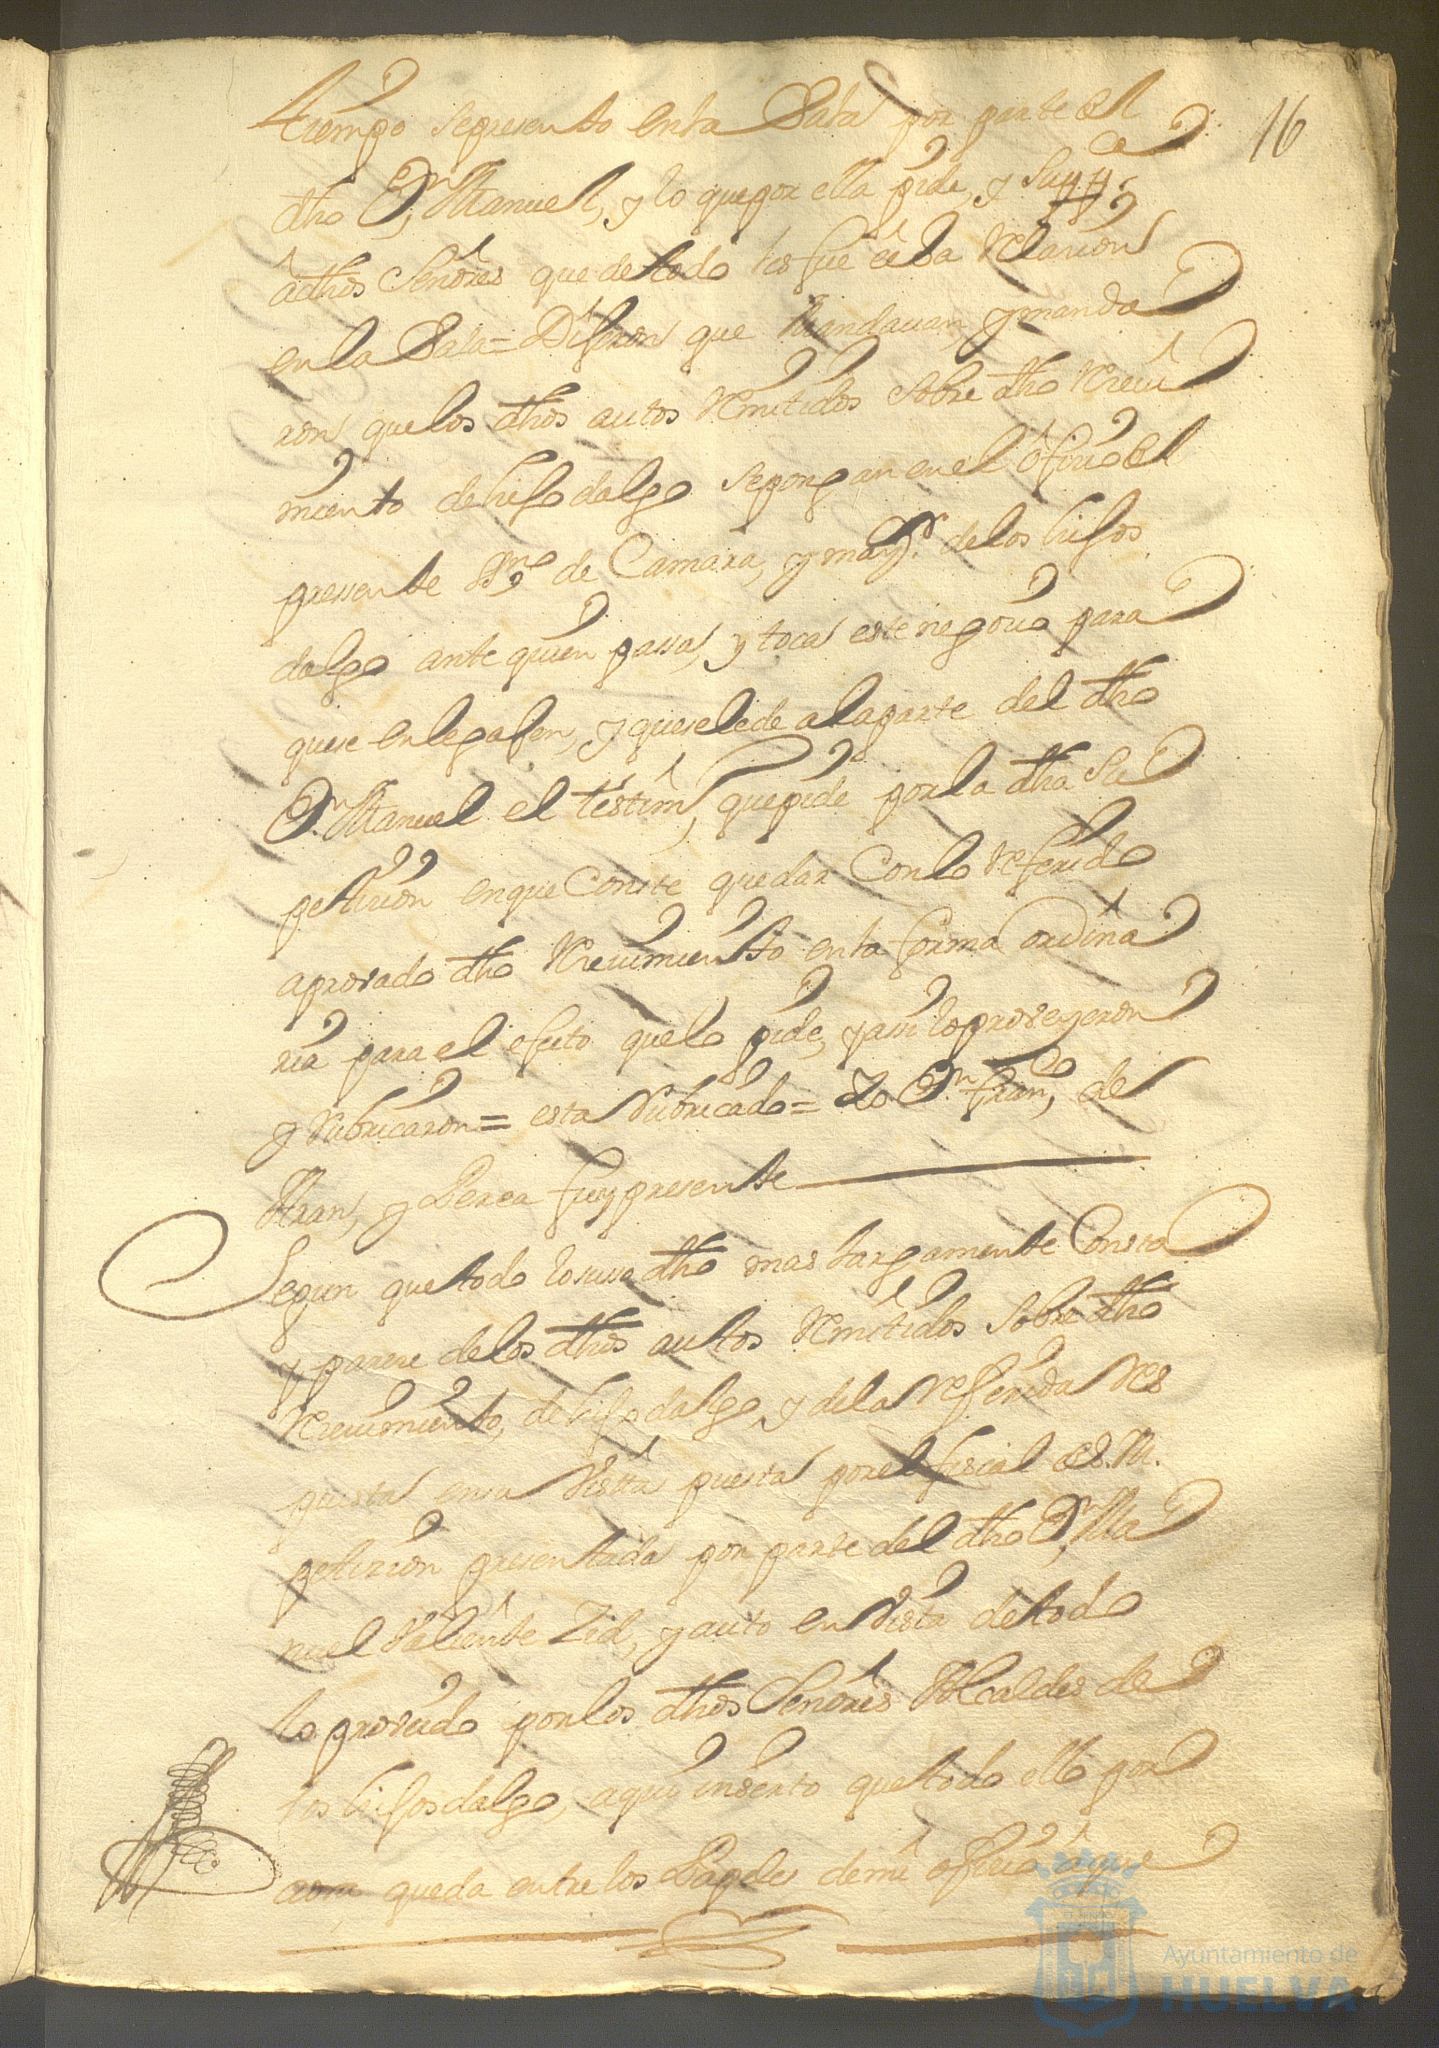 16
tiempo sepresento enla Sala por parte del
dho Dn, Manuel, y lo quepor ella pide, y Suppca
âdhos Señores que detodo les fue êcha Relazion
en la Sala = Dijeron que Mandauan, ymanda
ron, quelos dhos autos Remitidos sobre dho Reciui
miento dehijo dalgo sepongan en el ôficio del
pressente Ssno de Camara, y may.r delos hijos
dalgo ante quien passa, y toca este negocio para
quese enlegajen, y queselede alaparte del dho
Dn Manuel el testim, quepide por la dha su
petizion enque Conste quedar Conlo Referido
aprovado dho Reciuimiento enla forma ordina
ria para el efecto quelo pide, yassi loproveyeron
y Rubricaron = esta Rubricado = Yo Dn fran,co de
Aran, y Perea fuy presente
Segun quetodo losusso dho mas largamente Consta
y parece delos dhos autos Remitidos sobre dho
Reciuimiento, dehijo dalgo, y dela Referida Res
puesta ensu Vista puesta porel fiscal de S. M.
petizion presentada por parte del dho Dn Ma
nuel Valiente Zid, y auto en Vista detodo
lo proveido por los dhos Señores Alcaldes de
los hijosdalgo, aqui inserto quetodo ello por
aora queda entre los Papeles demi ôficio âque
Ayuntamiento de
HUELVA